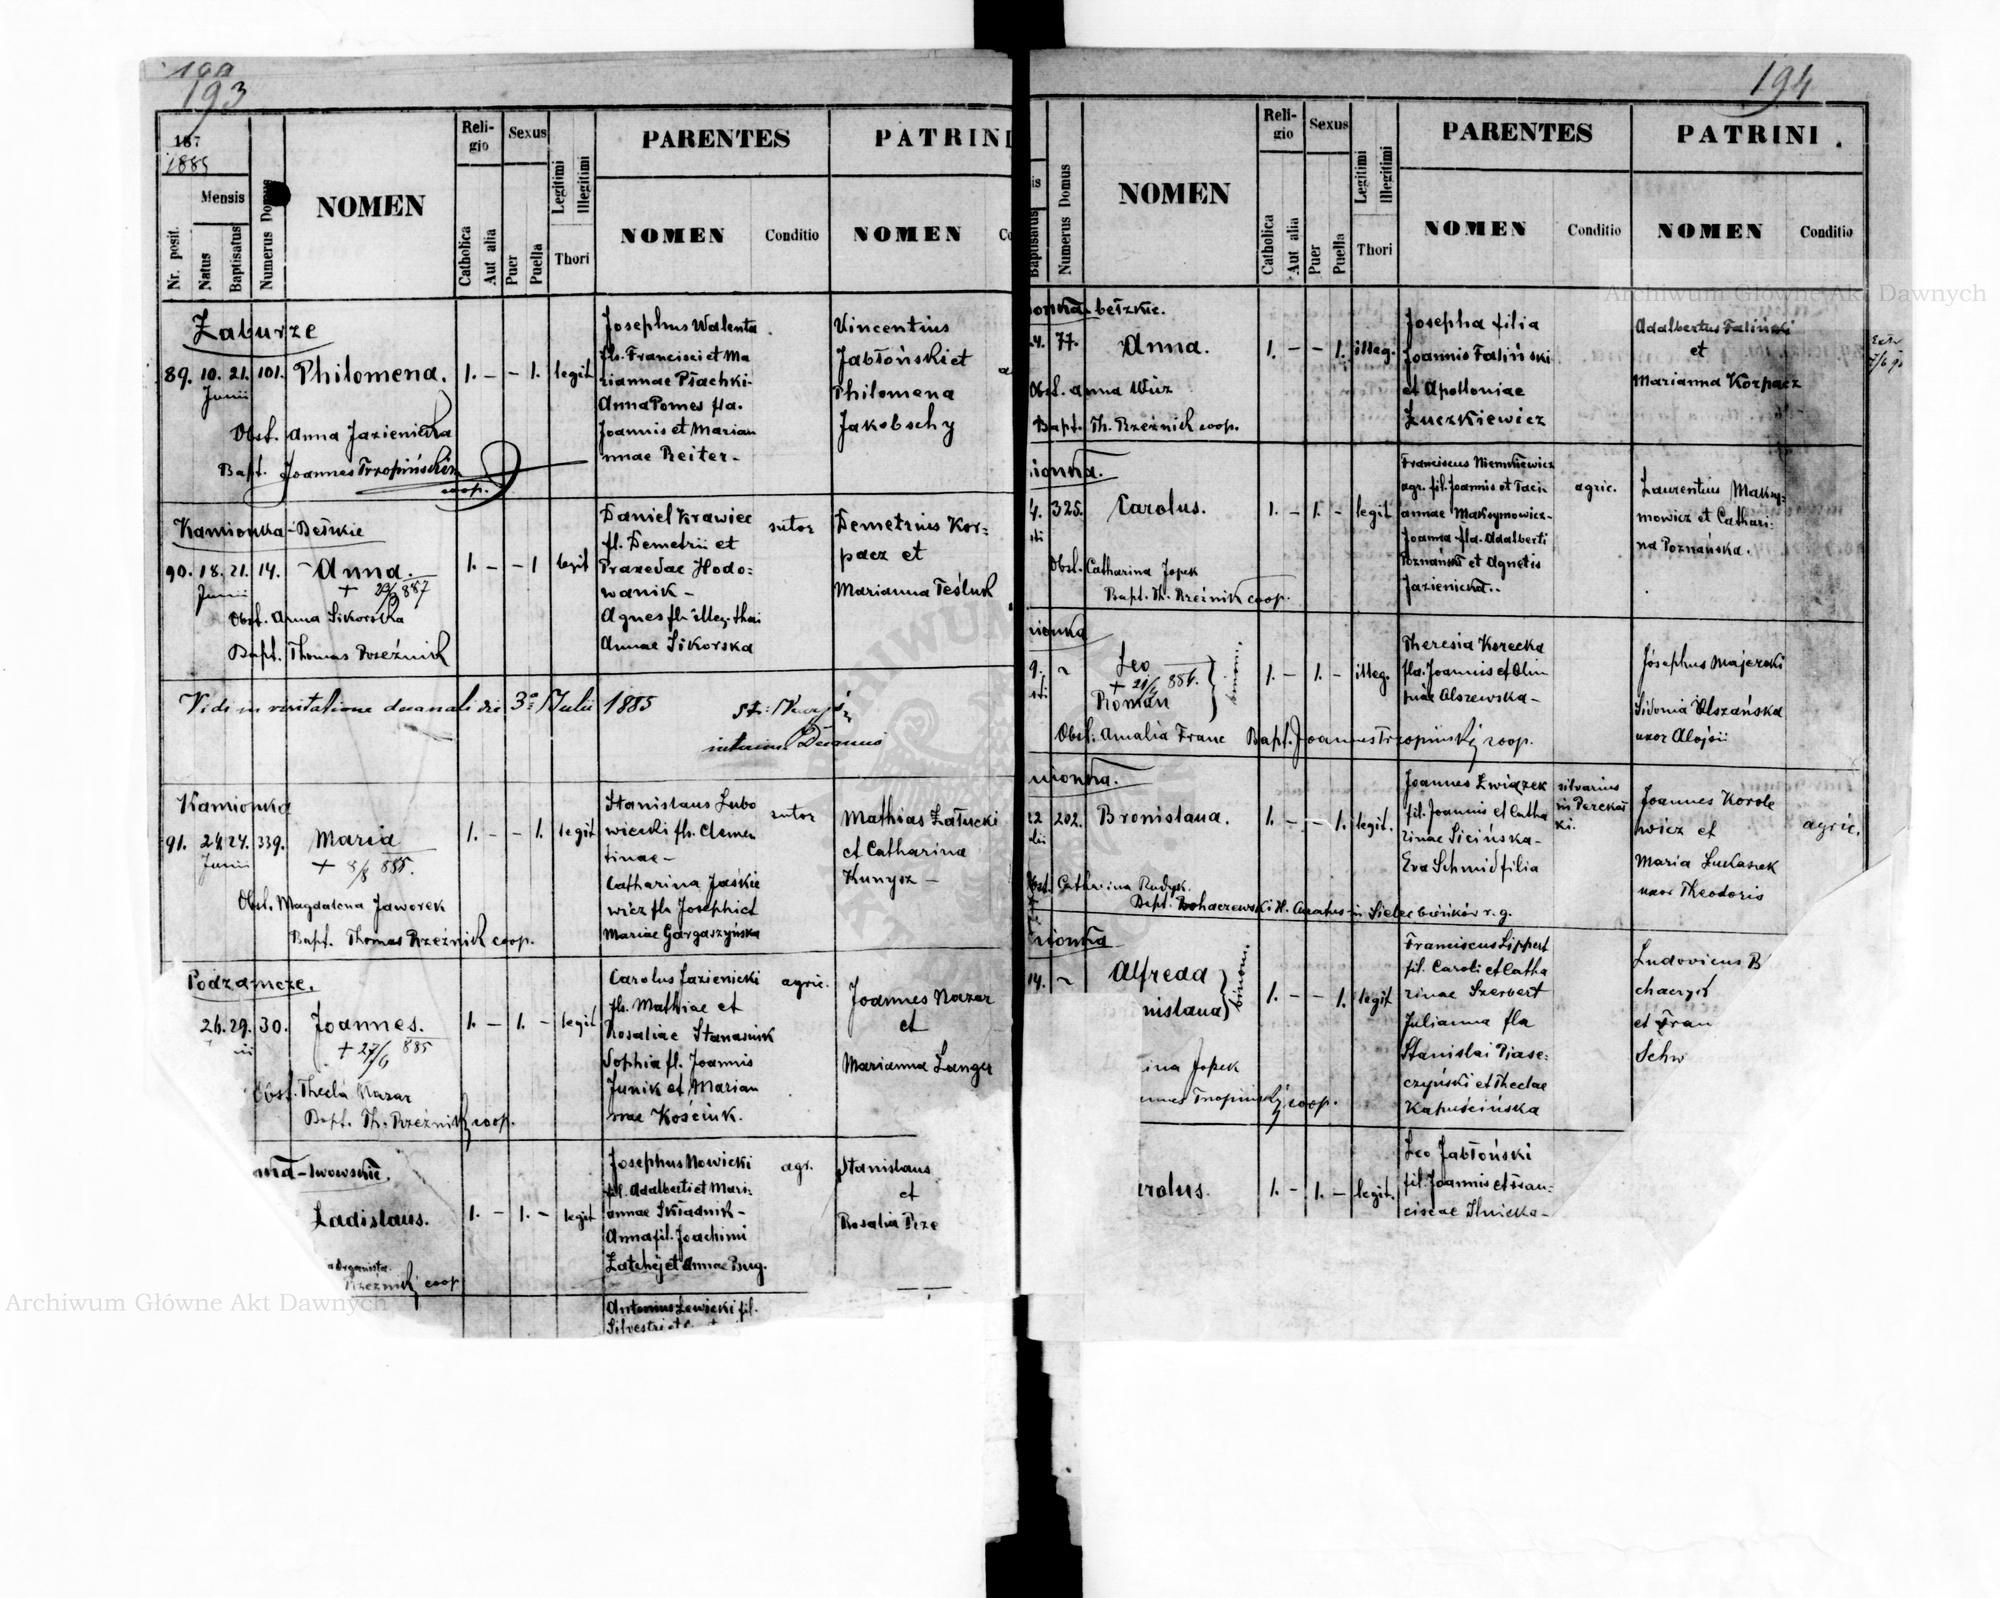 193
187
1885
Nr. posit.
Mensis
Natus
Baptisatus
Numerus Domus
NOMEN
Reli-
gio
Catholica
Aut alia
Sexus
Puer
Puella
Legitimi
Illegitimi
Thori
PARENTES
NOMEN
Conditio
PATRINI
NOMEN
Zaburze
89. 10. 21. 101. Philomena. 1. – – 1. legit
Junii
Obst. Anna Jazienicka
Bapt. Joannes Trzopiński
coop.
Josephus Walenta
fls. Francisci et Ma
riannae Ptachki-
Anna Pomes fla.
Joannis et Marian
nnae Reiter-
Vincentius
Jabłoński et
Philomena
Jakobschy
Kamionka-Bełzkie
90. 18. 21. 14. Anna. 1. – – 1 legit
Junii
+ 887
Obst. Anna Sikorska
Bapt. Thomas Rzeźnik
Daniel Krawiec
fl. Demetrii et
Praxedae Hodo:
wanik-
Agnes fla illeg. thori
Annae Sikorska
sutor
Demetrius Kor:
pacz et
Marianna Teśluk
Vidi in visitatione decanali die 3a Julii 1885
interim. Decanus
Kamionka
91. 24. 24. 339. Maria 1. – – 1. legit
Junii
+ 8/8 885.
Obst. Magdalena Jaworek
Bapt. Thomas Rzeźnik coop.
Stanislaus Lubo
wiecki fls. Clemen
tinae-
Catharina Jaśkie
wicz fla Josephi et
Mariae Gargaszyńska
sutor
Mathias Załucki
et Catharina
Kunysz-
Podzamcze.
26. 29. 30. Joannes. 1. – 1. – legit
+ 27/6 885
Obst. Thecla Nazar
Bapt. Th. Rzeźnik coop.
Carolus Jazienicki
fls. Mathiae et
Rosaliae Stanasiuk
Sophia fl. Joannis
Junik et Marian
nae Kosciuk.
agric.
Joannes Nazar
et
Marianna Langer
-Lwowskie.
Ladislaus. 1. – 1. – legit
Organista.
Rzeźnik coop
Josephus Nowicki
fil. Adalberti et Mari:
annae Składnik-
Anna fil. Joachimi
Zatchej et Annae Bug.
agr.
Stanislaus
et
Rosalia
Antonius Lewicki fil.
Silvestri et
194
Baptisatus
Numerus Domus
NOMEN
Reli-
gio
Catholica
Aut alia
Sexus
Puer
Puella
Legitimi
Illegitimi
Thori
PARENTES
NOMEN
Conditio
PATRINI.
NOMEN
Conditio
bełzkie.
77. Anna. 1. – – 1. illeg.
Obst. Anna Wúz
Bapt. Th. Rzeźnik coop.
Josepha filia
Joannis Faliński
et Apolloniae
Łuczkiewicz
Adalbertus Faliński
et
Marianna Korpacz
ionka.
325. Carolus. 1. – 1. – legit
Obst. Catharina Jopek
Bapt. Th. Rzeźnik coop.
Franciscus Niemkiewicz
agr. fil. Joannis et
annae Maksymowicz-
Joanna fla. Adalberti
Poznański et Agnetis
Jazienicka..
agric.
Laurentius Maksy-
mowicz et Cathari:
na Poznańska.
9. ~ Leo 1. – 1. – illeg.
+ 886.
Roman
Obst. Amalia Franc Bapt. Joannes Trzopiński coop.
Theresia Korecka
fla. Joannis et Olim
piae Olszewska-
Josephus Majerski
Sidonia Olszańska
uxor Aloisii
ionka.
202. Bronislava. 1. – – 1. legit.
Obst. Catharina Rudyk.
Bapt. Bohaczewski H. Curatus in Sielec bieńków r. g.
Joannes Związek
fil. Joannis et Catha
rinae Sicińska-
Eva Schmid filia
silvarius
Joannes Korole
wicz et
Maria Łukasiek
uxor Theodoris
agric.
ionka
14. ~ Alfreda 1. – – 1. legit
nislava binomi.
ina Jopek
coop.
Franciscus Lippert
fil. Caroli et Catha
rinae Szerbert
Julianna fla
Stanislai Piase:
czyński et Theclae
Kapuścińska
Ludovicus B
et Fran
Schw
rolus. 1. – 1. – legit.
Leo Jabłoński
fil. Joannis et Fran:
ciscae Ilnicka-
Archiwum Główne Akt Dawnych
Archiwum Główne Akt Dawnych